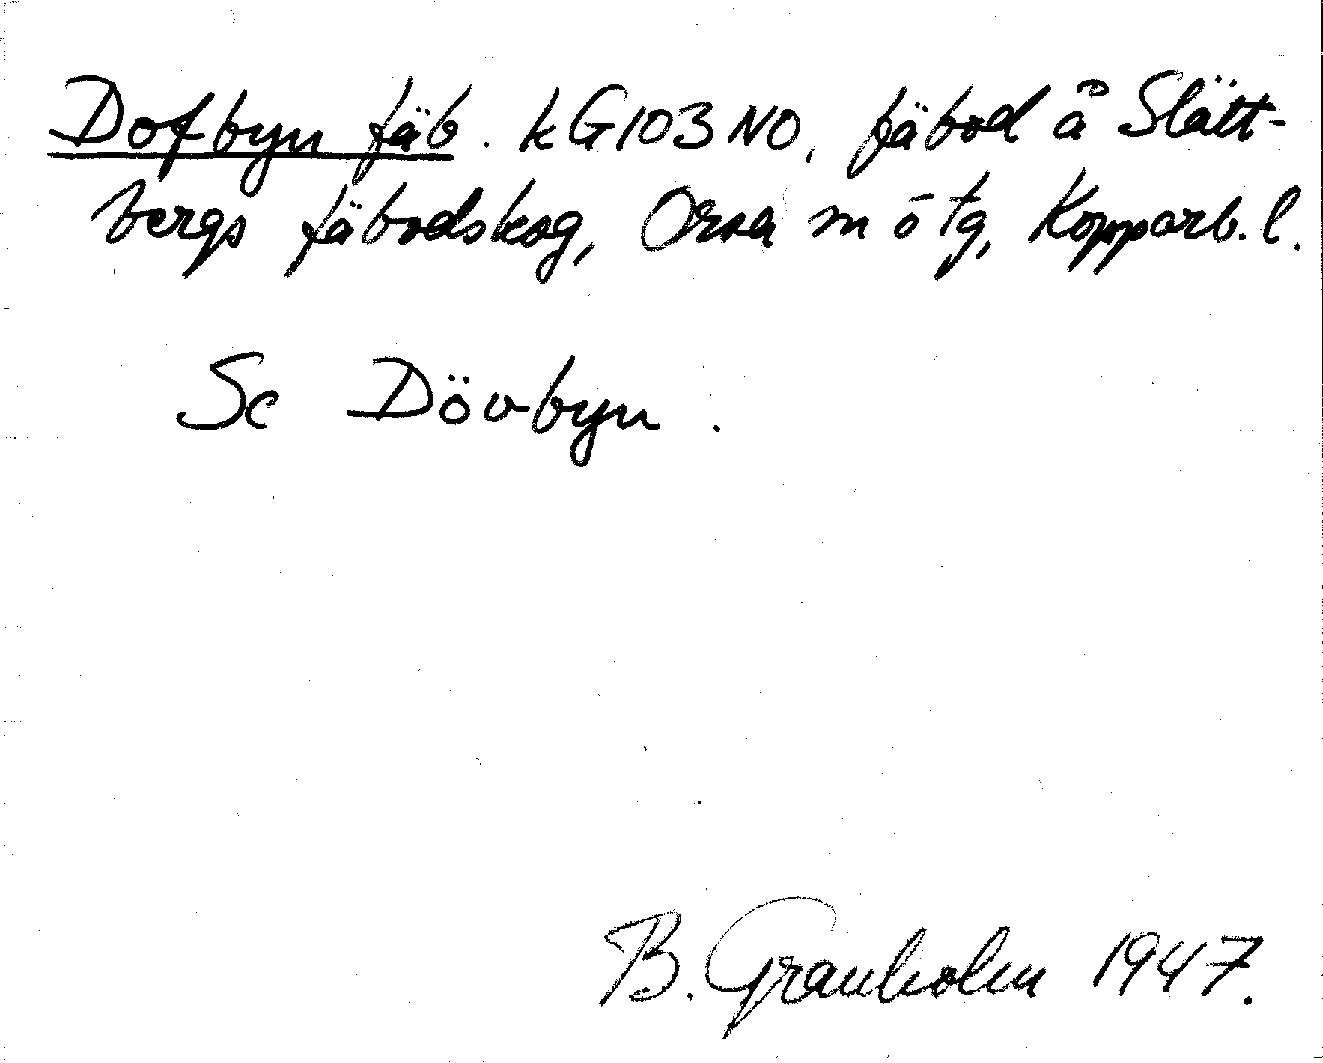 Dofbyn fäb. kG103NO, fäbod å Slätt-
bergs fäbodskog, Orsa m o tg, Kopparb. l.
Se Dövbyn.
B. Granholm 1947.